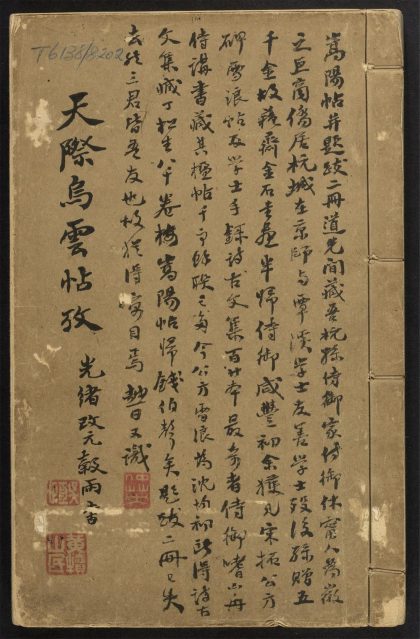 T6138/8202
嵩陽帖并題跋二冊道光間藏吾杭孫侍御家侍御休甯人為徽
之巨商僑居杭城在京師與覃溪學士友善學士歿後孫贈五
千金故蘇齋金石書畫半歸侍御咸豐初余獲見宋拓公方
碑雪浪帖及學士手錄詩古文集百廿本最奇者侍御嗜山舟
侍講書藏其楹帖千百餘聯今公方雪浪為沈均初所得詩古
文集藏丁松生八千卷樓嵩陽帖歸錢伯聲矣題跋二冊已失
去三君皆吾友也故猶得寓目焉 越日又識
天際烏雲帖攷
光緒改元穀雨